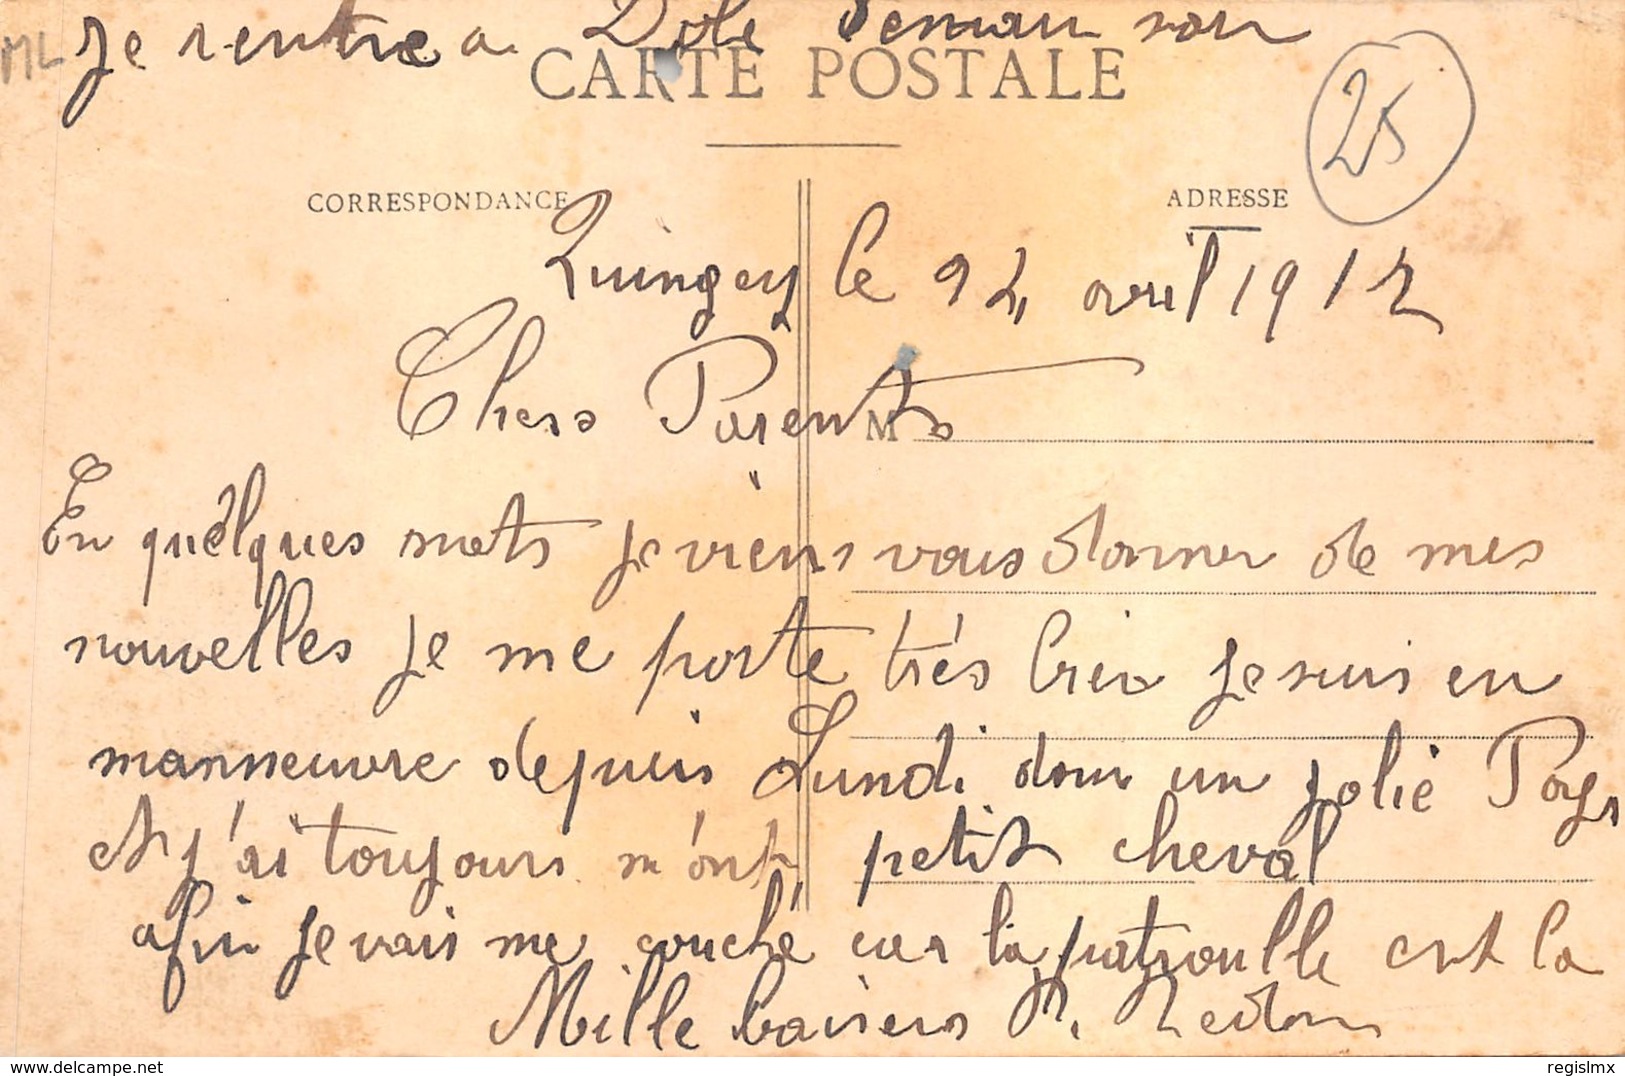 ML Je rentre a Dole demain soir
CARTE POSTALE
25
CORRESPONDANCE
ADRESSE
Quingey le 24 avril 1912
Chers Parents
M
En quèlques mots je viens vous donner de mes
nouvelles je me porte très bien je suis en
manneuvre depuis Lundi dans un jolie Pays
et j'ai toujours mont petit cheval
afin je vais me couché car la patroulle est la
Mille baisers
regislmx
delcampe.net